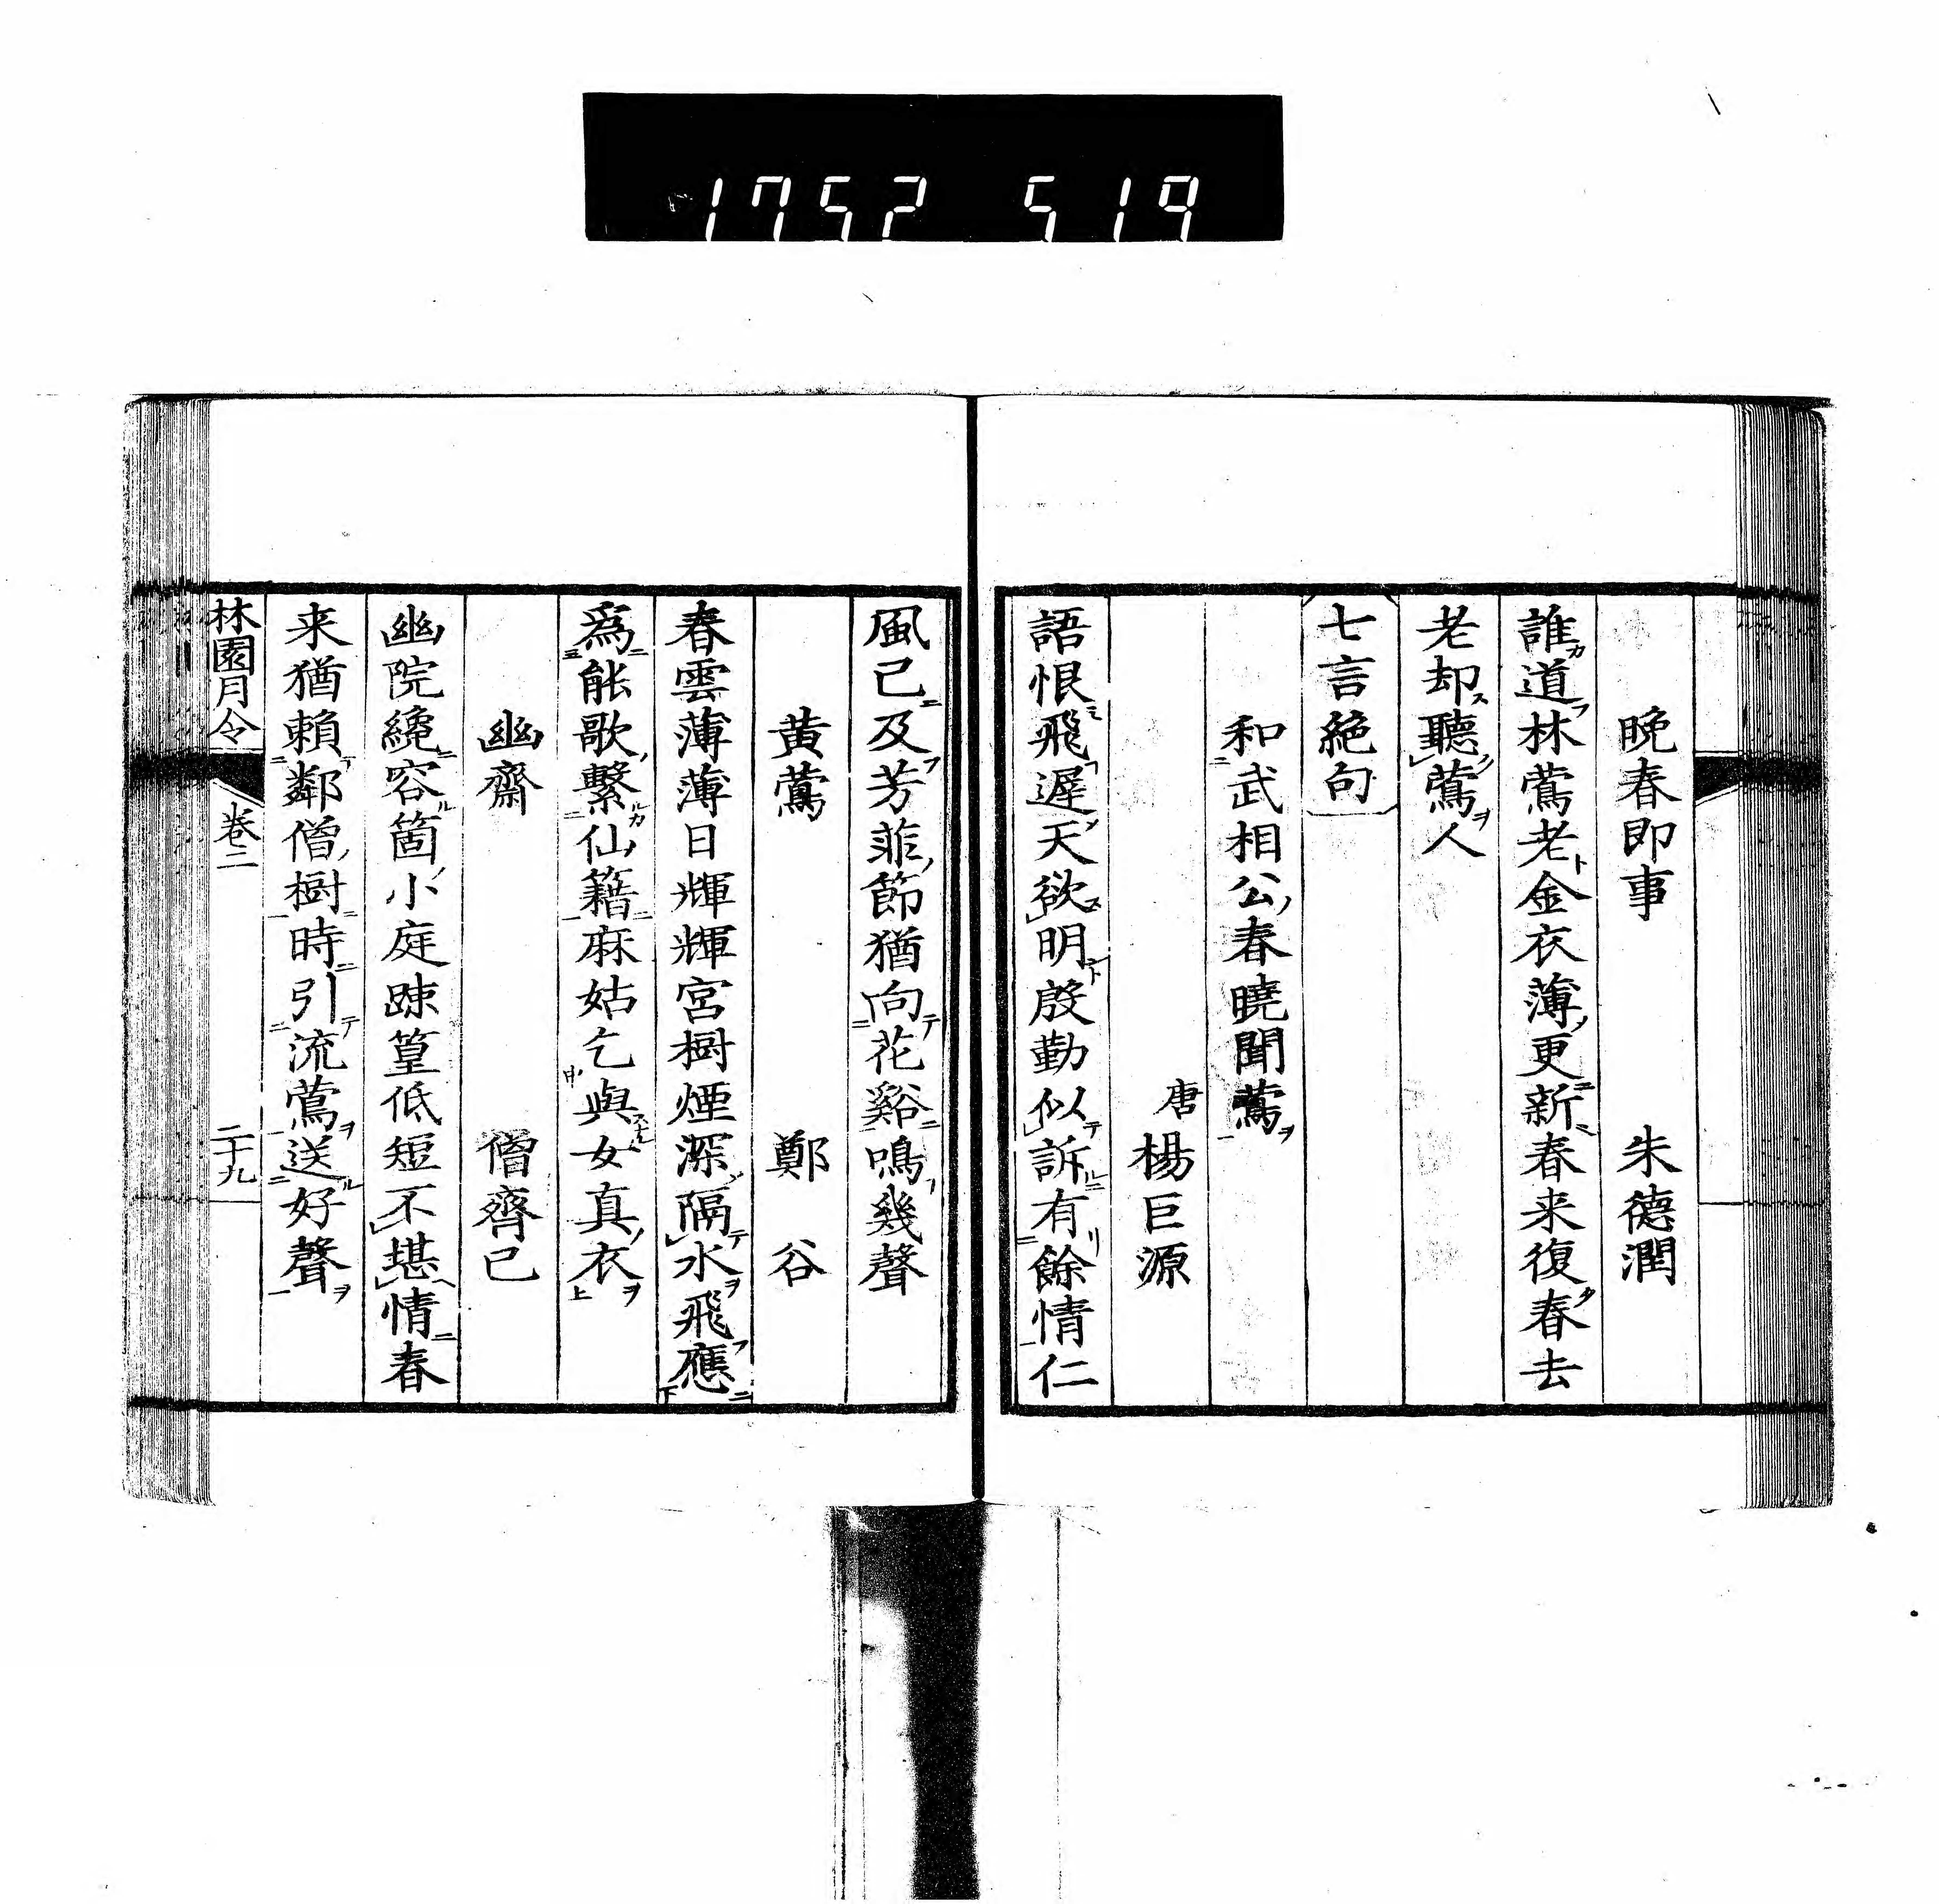 1752 519
晩春即事 朱徳潤
誰道林鶯老金衣薄更新春来復春去
老却聽鶯人
七言絶句
和武相公春曉聞鶯
唐 楊巨源
語恨飛遲天欲明殷勤似訴有餘情仁
風已及芳菲節猶向花谿鳴幾聲
黄鶯 鄭谷
春雲薄薄日輝輝宮樹煙深隔水飛應
爲能歌繫仙籍麻姑乞與女真衣
幽齋 僧齊己
幽院纔容箇小庭踈篁低短不堪情春
来猶賴鄰僧樹時引流鶯送好聲
林園月令 卷二 二十九